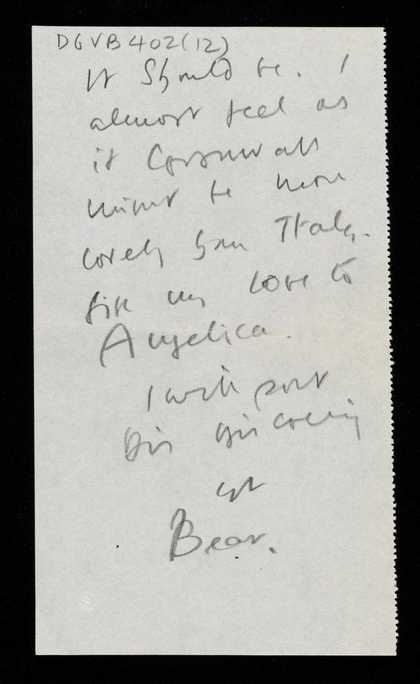 DGVB402(12)
It should be. I
almost feel as
if Cornwall
might be more
lovely than Italy.
Give my love to
Angelica.
I will post
this this evening
yr
Bear.